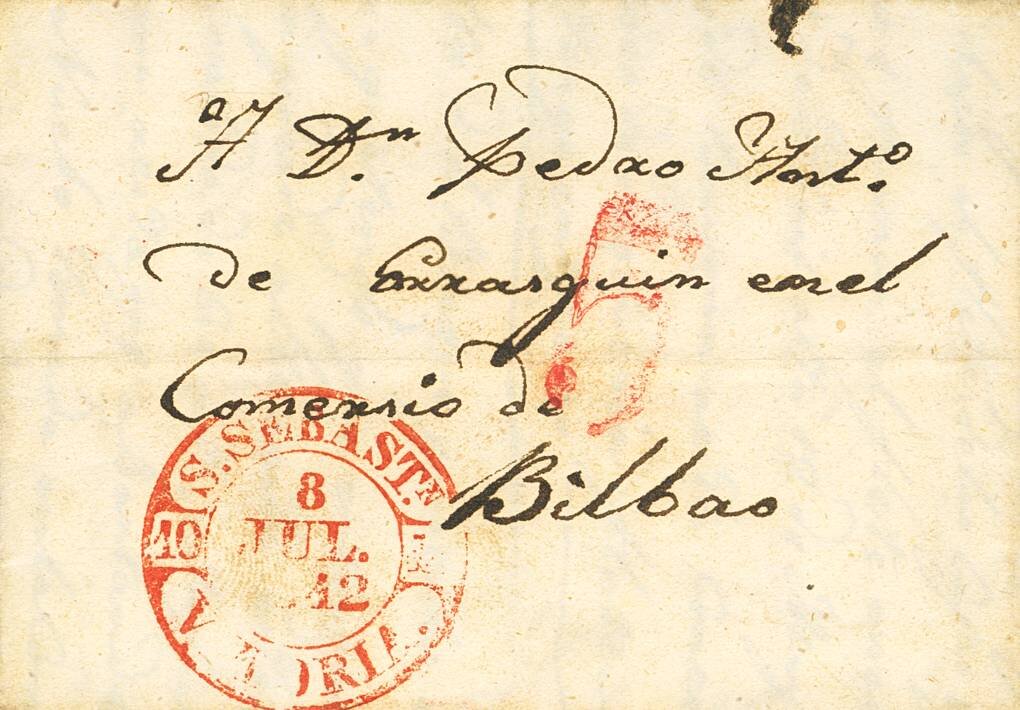 A Dn. Pedro Anto.
de Errasquin en el
Comersio de
Bilbao
5
S. SEBASTN.
10
8
JUL.
12